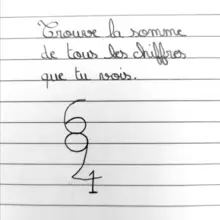 Trouve la somme
de tous les chiffres
que tu vois.